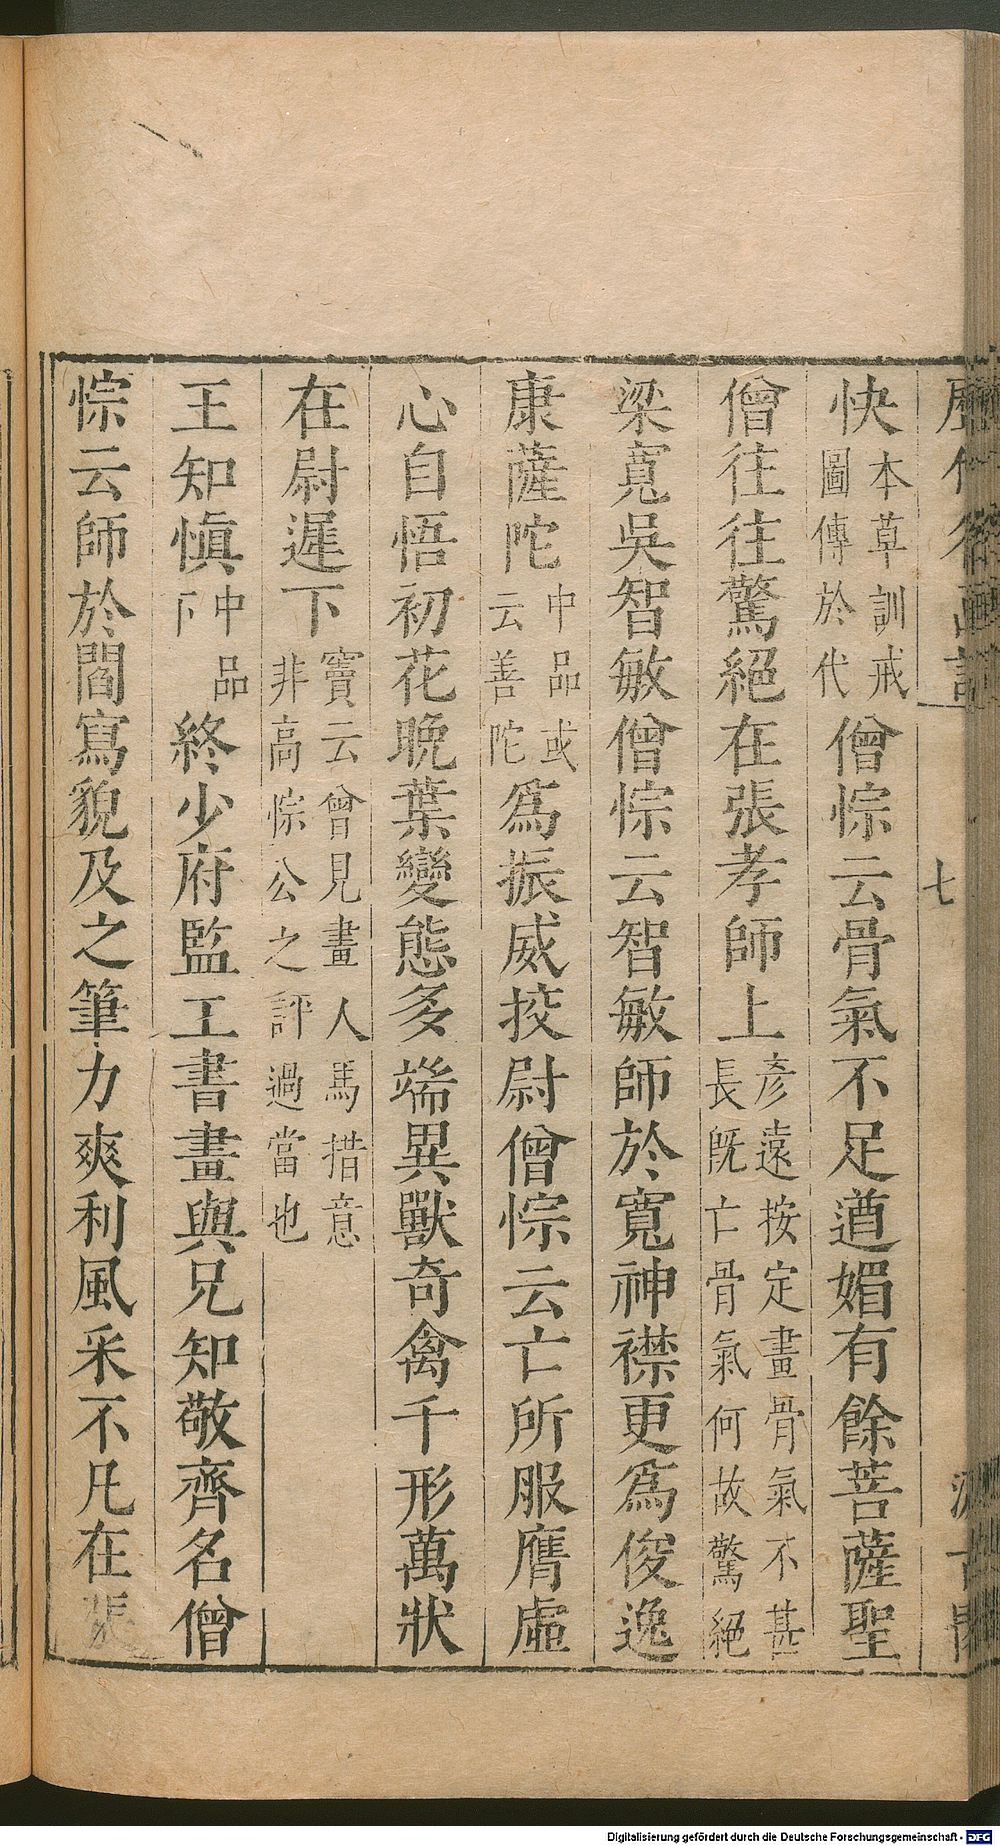 七
快本草訓戒圖傳於代僧悰云骨氣不足遒媚有餘菩薩聖
僧往往驚絕在張孝師上彥遠按定畫骨氣不甚長旣亡骨氣何故驚絕
梁寬吳智敏僧悰云智敏師於寬神襟更爲俊逸
康薩陀中品或云善陀爲振威挍尉僧悰云亡所服膺虛
心自悟初花晚葉變態多端異獸奇禽千形萬狀
在尉遲下竇云曾見畫人馬措意非高悰公之評過當也
王知愼中品下終少府監工書畫與兄知敬齊名僧
悰云師於閻寫貌及之筆力爽利風采不凡在張
Digitalisierung gefördert durch die Deutsche Forschungsgemeinschaft - DFG